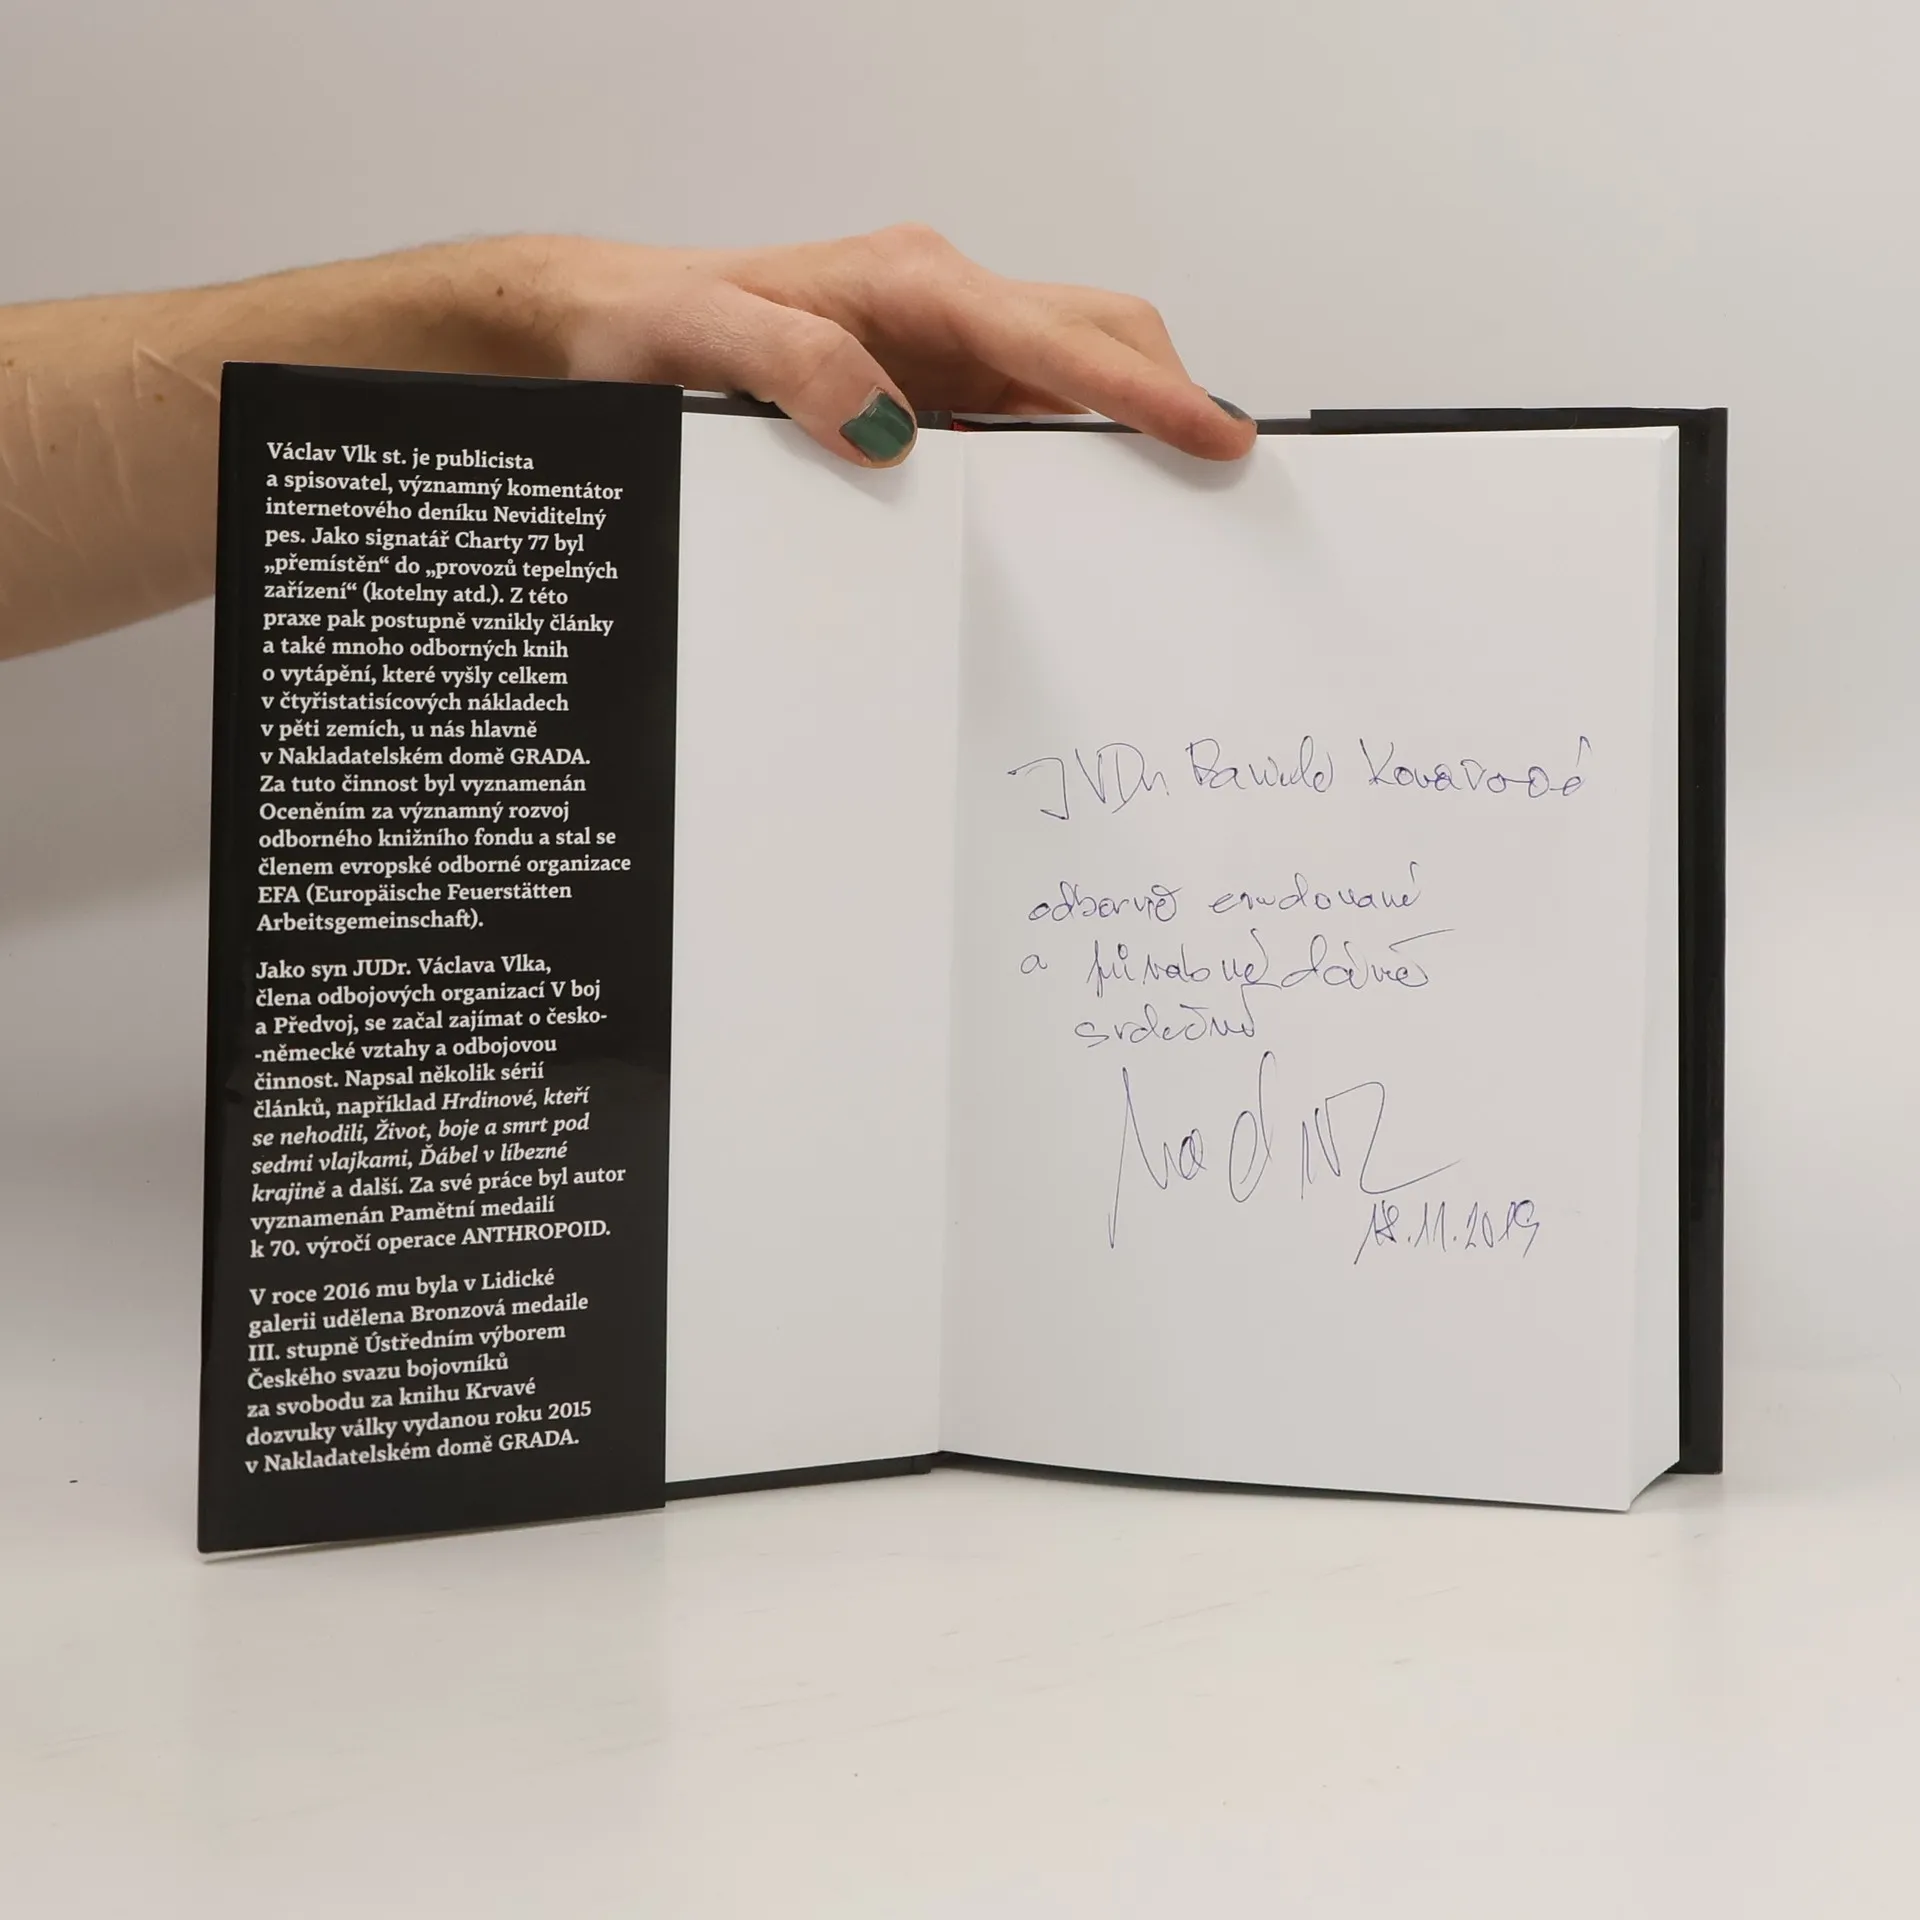 Václav Vlk st. je publicista
a spisovatel, významný komentátor
internetového deníku Neviditelný
pes. Jako signatář Charty 77 byl
„přemístěn“ do „provozů tepelných
zařízení“ (kotelny atd.). Z této
praxe pak postupně vznikly články
a také mnoho odborných knih
o vytápění, které vyšly celkem
v čtyřistatisícových nákladech
v pěti zemích, u nás hlavně
v Nakladatelském domě GRADA.
Za tuto činnost byl vyznamenán
Oceněním za významný rozvoj
odborného knižního fondu a stal se
členem evropské odborné organizace
EFA (Europäische Feuerstätten
Arbeitsgemeinschaft).
Jako syn JUDr. Václava Vlka,
člena odbojových organizací V boj
a Předvoj, se začal zajímat o česko-
-německé vztahy a odbojovou
činnost. Napsal několik sérií
článků, například Hrdinové, kteří
se nehodili, Život, boje a smrt pod
sedmi vlajkami, Ďábel v líbezné
krajině a další. Za své práce byl autor
vyznamenán Pamětní medailí
k 70. výročí operace ANTHROPOID.
V roce 2016 mu byla v Lidické
galerii udělena Bronzová medaile
III. stupně Ústředním výborem
Českého svazu bojovníků
za svobodu za knihu Krvavé
dozvuky války vydanou roku 2015
v Nakladatelském domě GRADA.
JUDr Kovářové
odborně erudované
a půvabné dámě
srdečně
18.11.2019